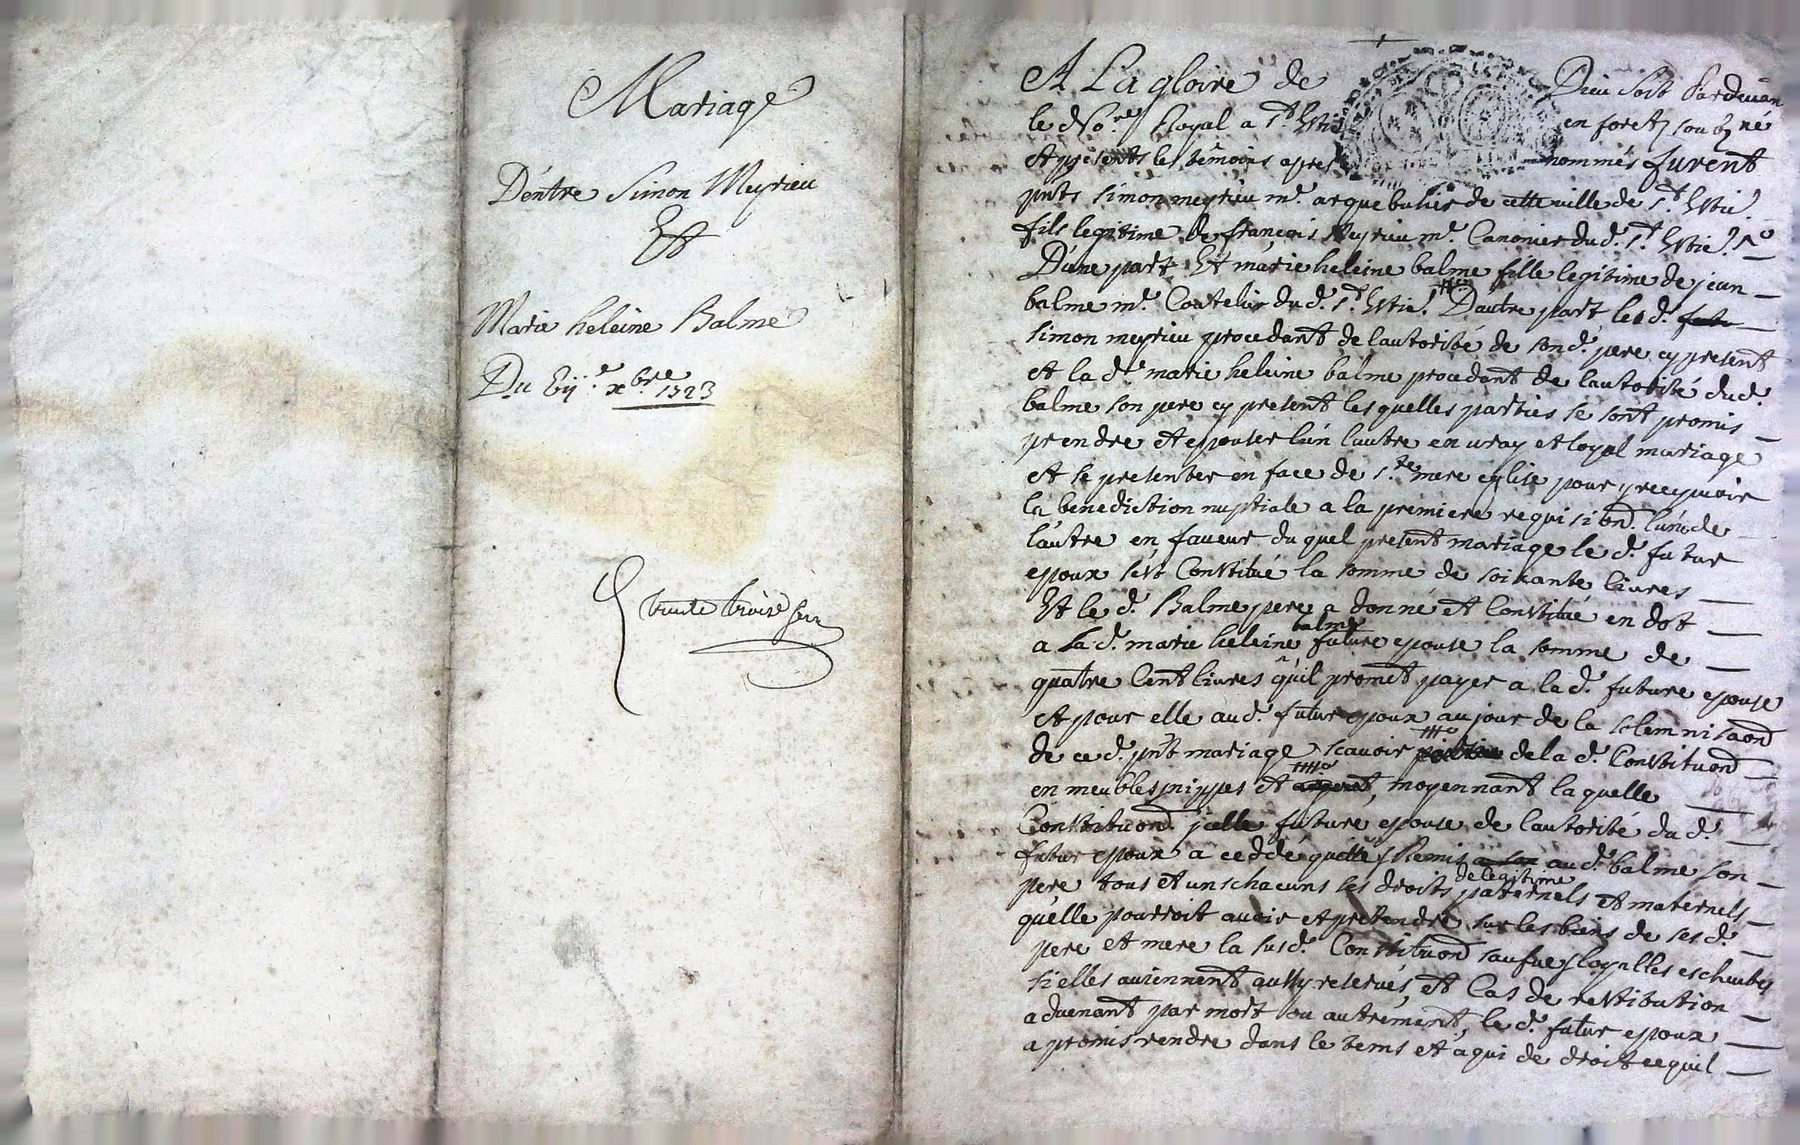 Mariage
D'entre Simon Meyrieu
Et
Marie heleine Balme
Du bij.e xbre 1723
trente trois
A La gloire de Dieu soit Pardevan
le Royal a St Estie en foretz soubzné
et presents les témoins apres nommés furent
pnts simon meyrieu me. arquebusier de cette ville de St Estie.
fils legitime de françois Meyrieu me. Canonier dud. St Estie.
D'une part Et marie heleine balme fille legitime de jean
balme me. Coutelier dud. St Estie. D'autre part led.
simon meyrieu procedant de lautorité de sond. pere cy present
et la de marie heleine balme procedant de lautorité dud.
balme son pere cy present lesquelles parties se sont promis
prendre et epouser lun lautre en vray et loyal mariage
et se presenter en face de ste mere eglise pour y recepvoir
la benediction nuptiale a la premiere requisiond. lun de
l'autre en faveur duquel present mariage le d. futur
epoux s'est Constitué la somme de soixante livres
Et le d. Balme pere a donné et Constitué en dot
a La d. marie heleine balme future epouse la somme de
quatre Cent livres qu'il promet payer a la d. future epouse
et pour elle aud. futur epoux au jour de la solemnisaond
de ce d. pnt mariage scavoir de la d. Constituond
en meubles nippes et argent, moyennant laquelle
Constituond. icelle future epouse de lautorité du d.
futur epoux a ceddé quitté Remis aud. balme son
pere tous et uns chacuns ses droits de legitime paternels et maternels
quelle pourroit avoir et pretendre sur les biens de ses d.
pere et mere la susd. Constituond sauf loyalles escheutes
sielles aviennent aussy reservés, et Cas de restitution
advenant par mort ou autrement, le d. futur epoux
a promis rendre dans le tems et a qui de droit ce quil